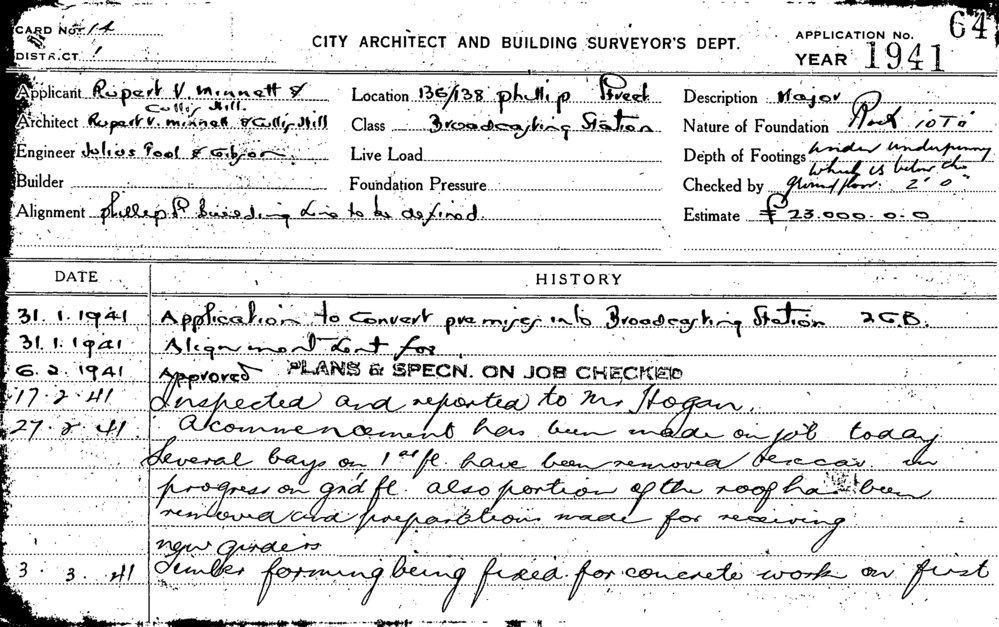 CARD No. 14
DISTRICT 1
CITY ARCHITECT AND BUILDING SURVEYOR'S DEPT.
APPLICATION No. 64
YEAR 1941
Applicant Rupert V. Minnett &
Cullis Hill.
Architect Rupert V. Minnett & Cullis Hill
Engineer Julius Pool & Gibson
Builder
Alignment Phillip St building line to be defined.
Location 136/138 Phillip Street
Class Broadcasting Station
Live Load
Foundation Pressure
Description Major
Nature of Foundation Rock 10T
Depth of Footings under underpinning
which is below the
Checked by ground floor. 2' 0"
Estimate £ 23.000.0.0
DATE HISTORY
31.1.1941 Application to Convert premises into Broadcasting Station 2GB.
31.1.1941 Alignment sent for
6.2.1941 Approved PLANS & SPECN. ON JOB CHECKED
17.2.41 Inspected and reported to Mr Hogan.
27.2.41 A commencement has been made on job today
Several bays on 1st fl. have been removed excav. in
progress on grd fl. also portion of the roof has been
removed and preparations made for receiving
new girders
3.3.41 Timber forming being fixed for concrete work on first